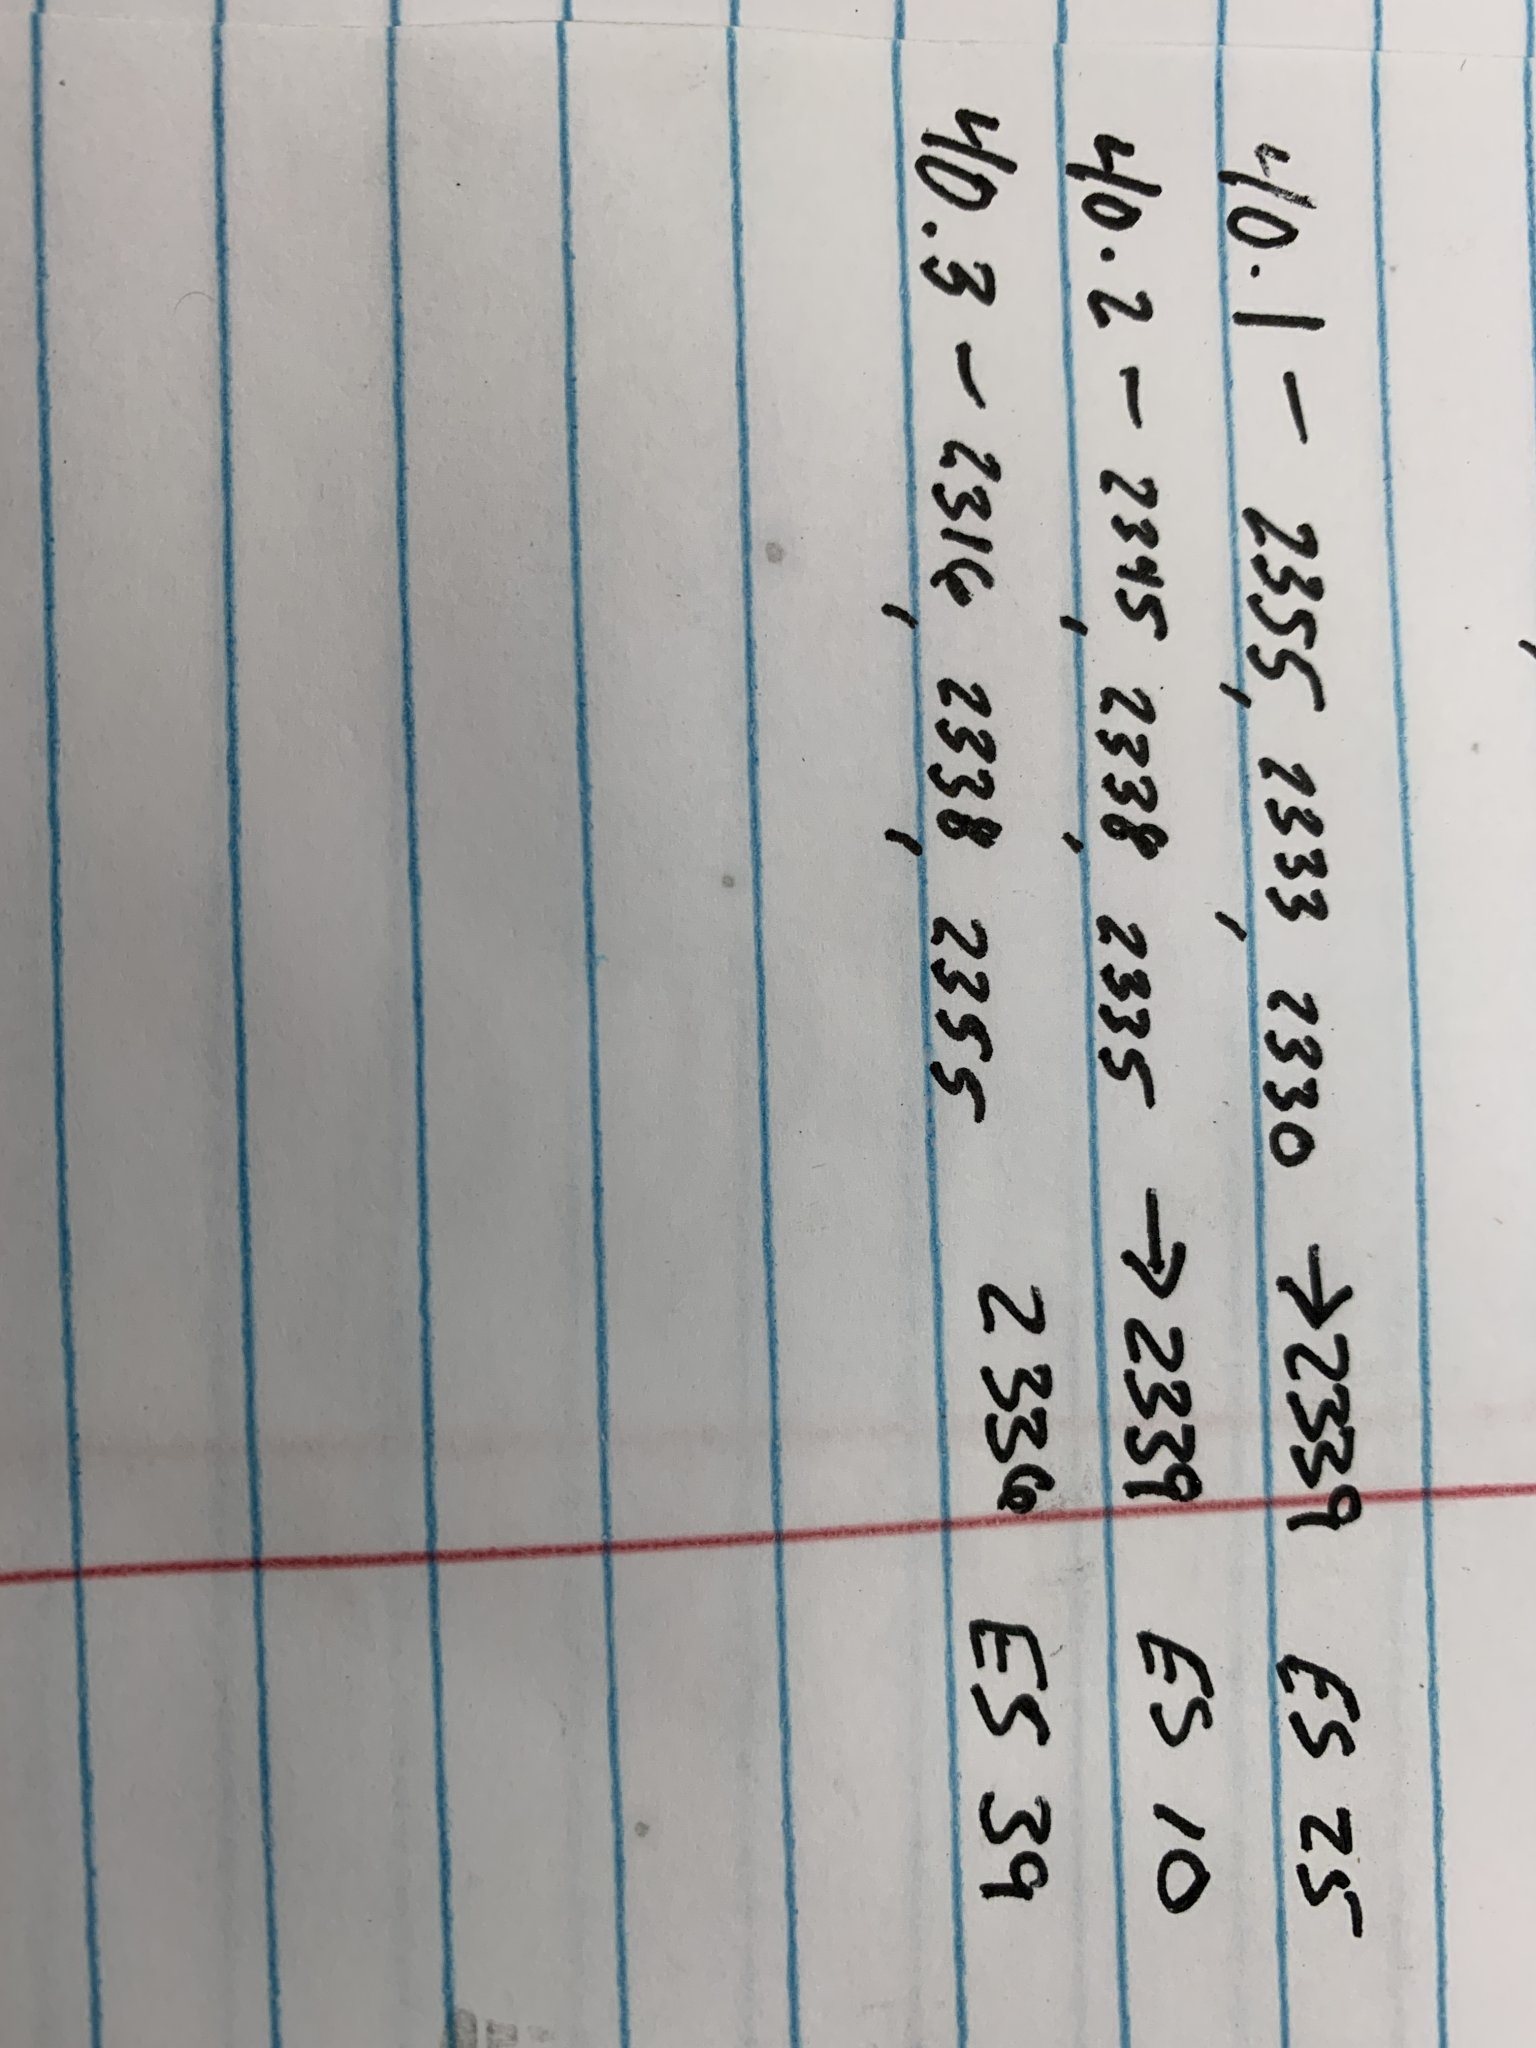 40.1 - 2355, 2333, 2330 → 2339 ES 25
40.2 - 2345, 2338, 2335 → 2339 ES 10
40.3 - 2316, 2338, 2355 2336 ES 39